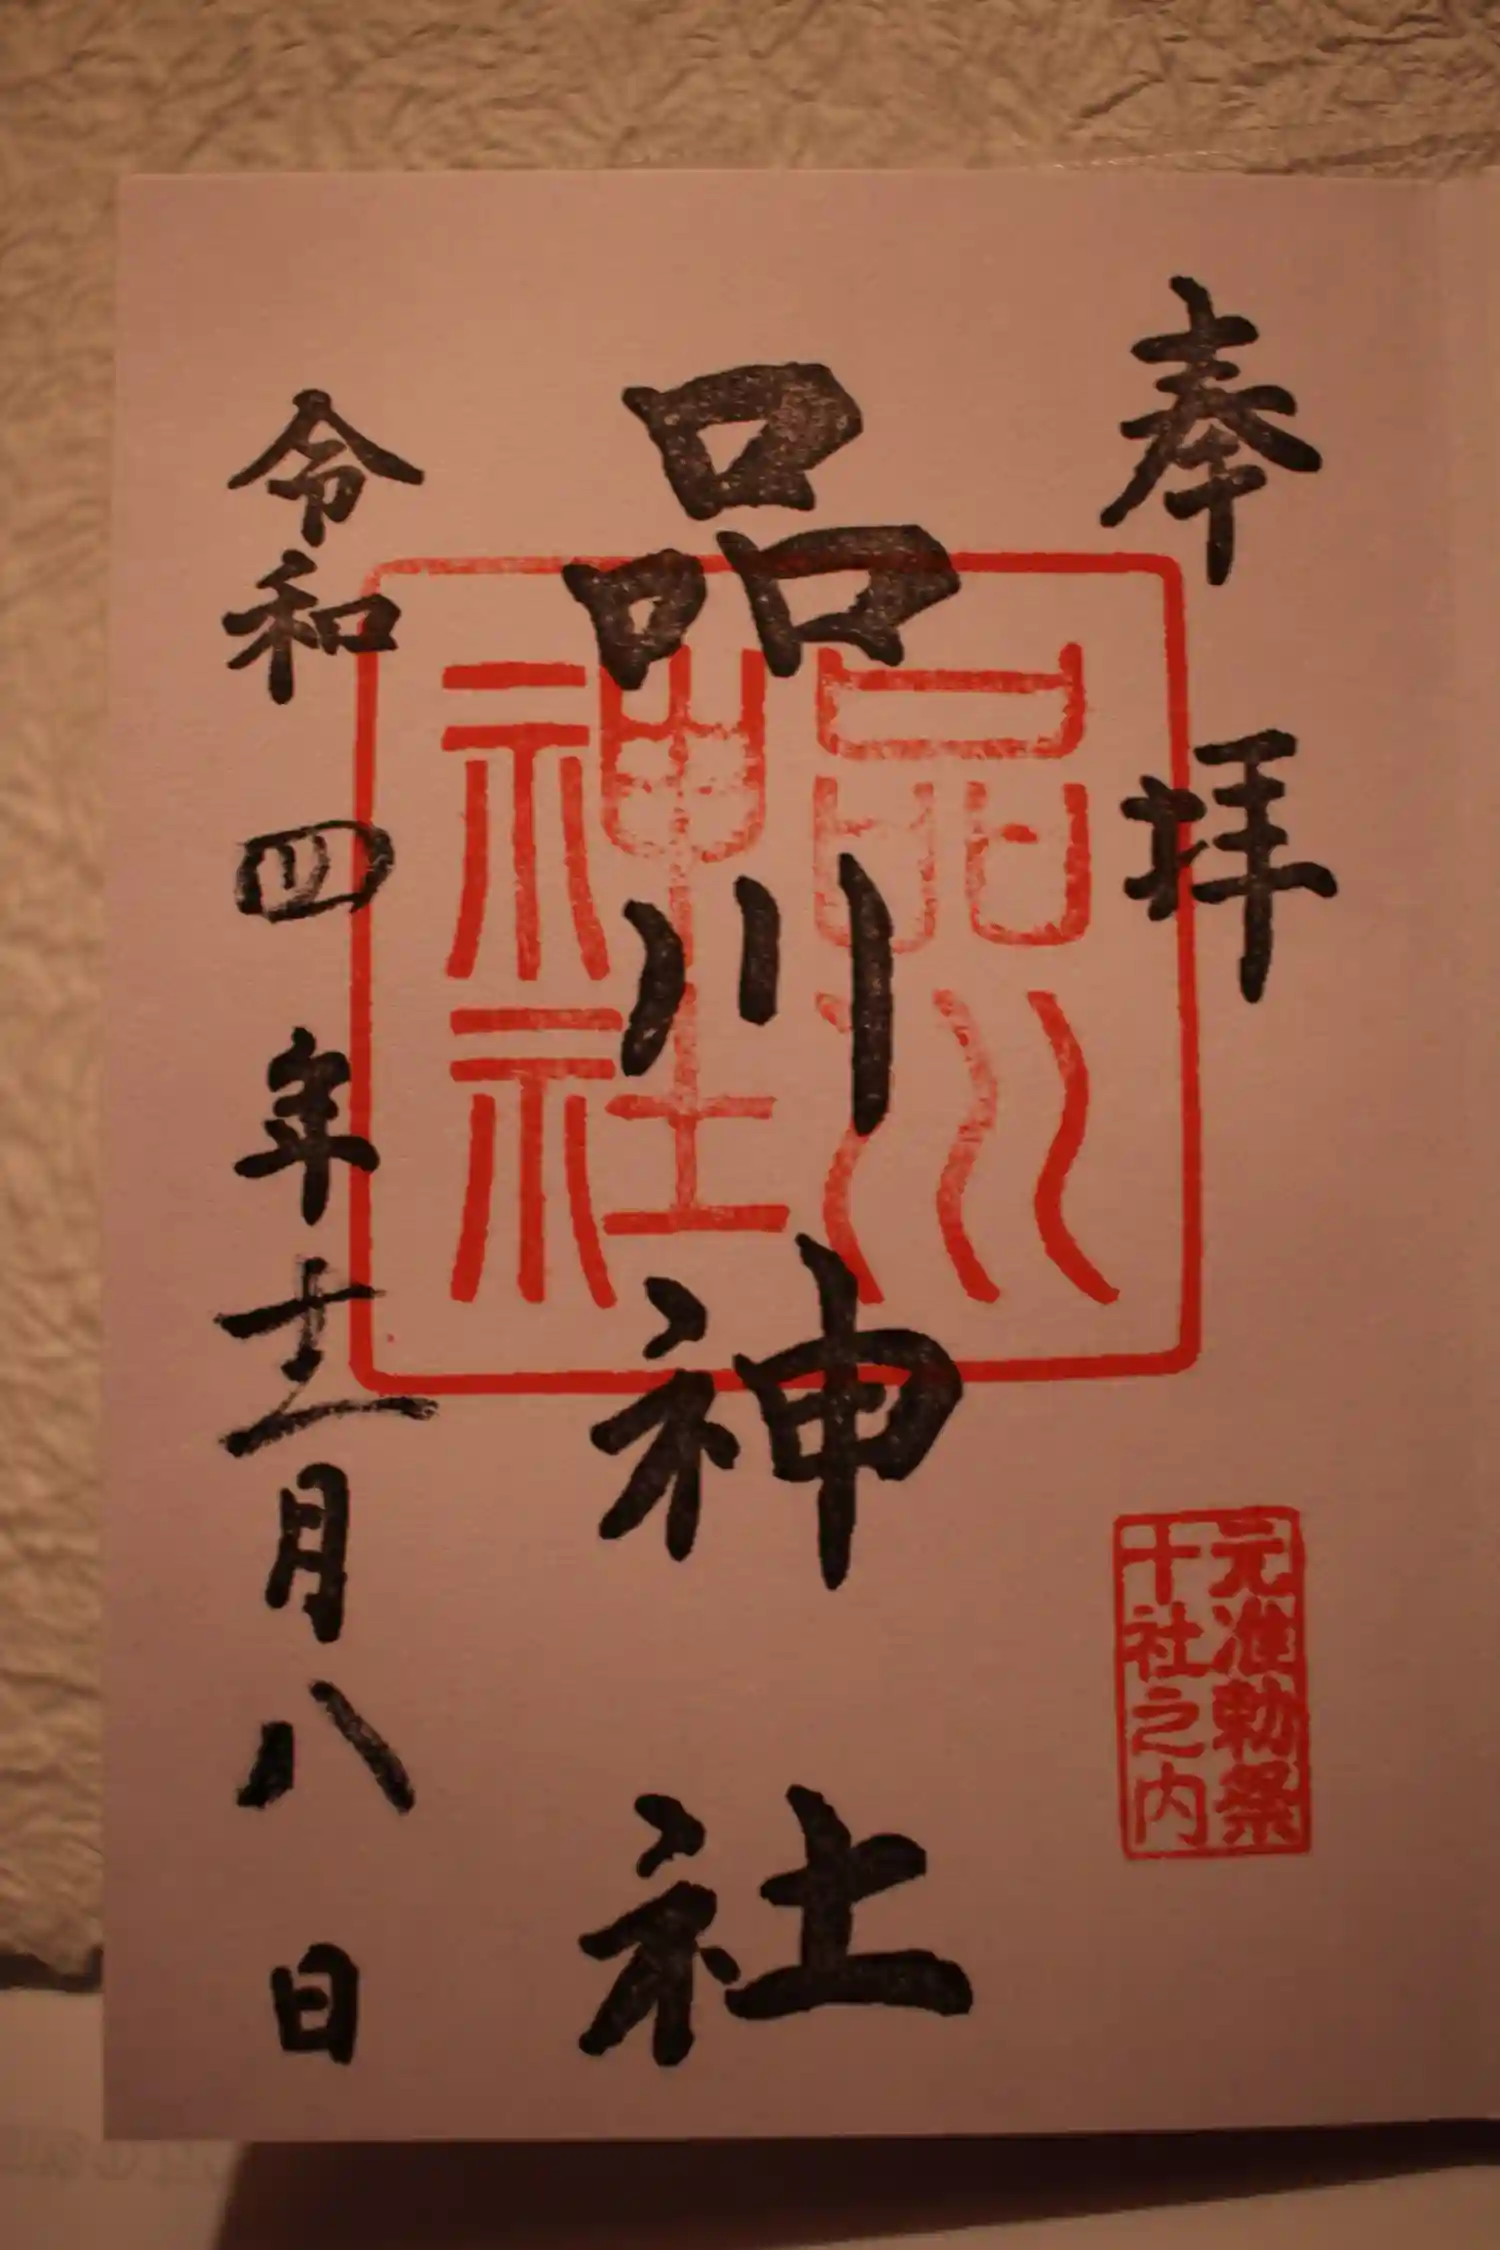 奉拝
元准勅祭
十社之内
品川神社
品川
神社
令和四年十二月八日